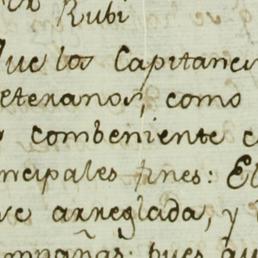 Rubi
Que los Capitanes
eteranos, como
combeniente c
ncipales fines: El
ve arreglada, y
mpañas: pues qu